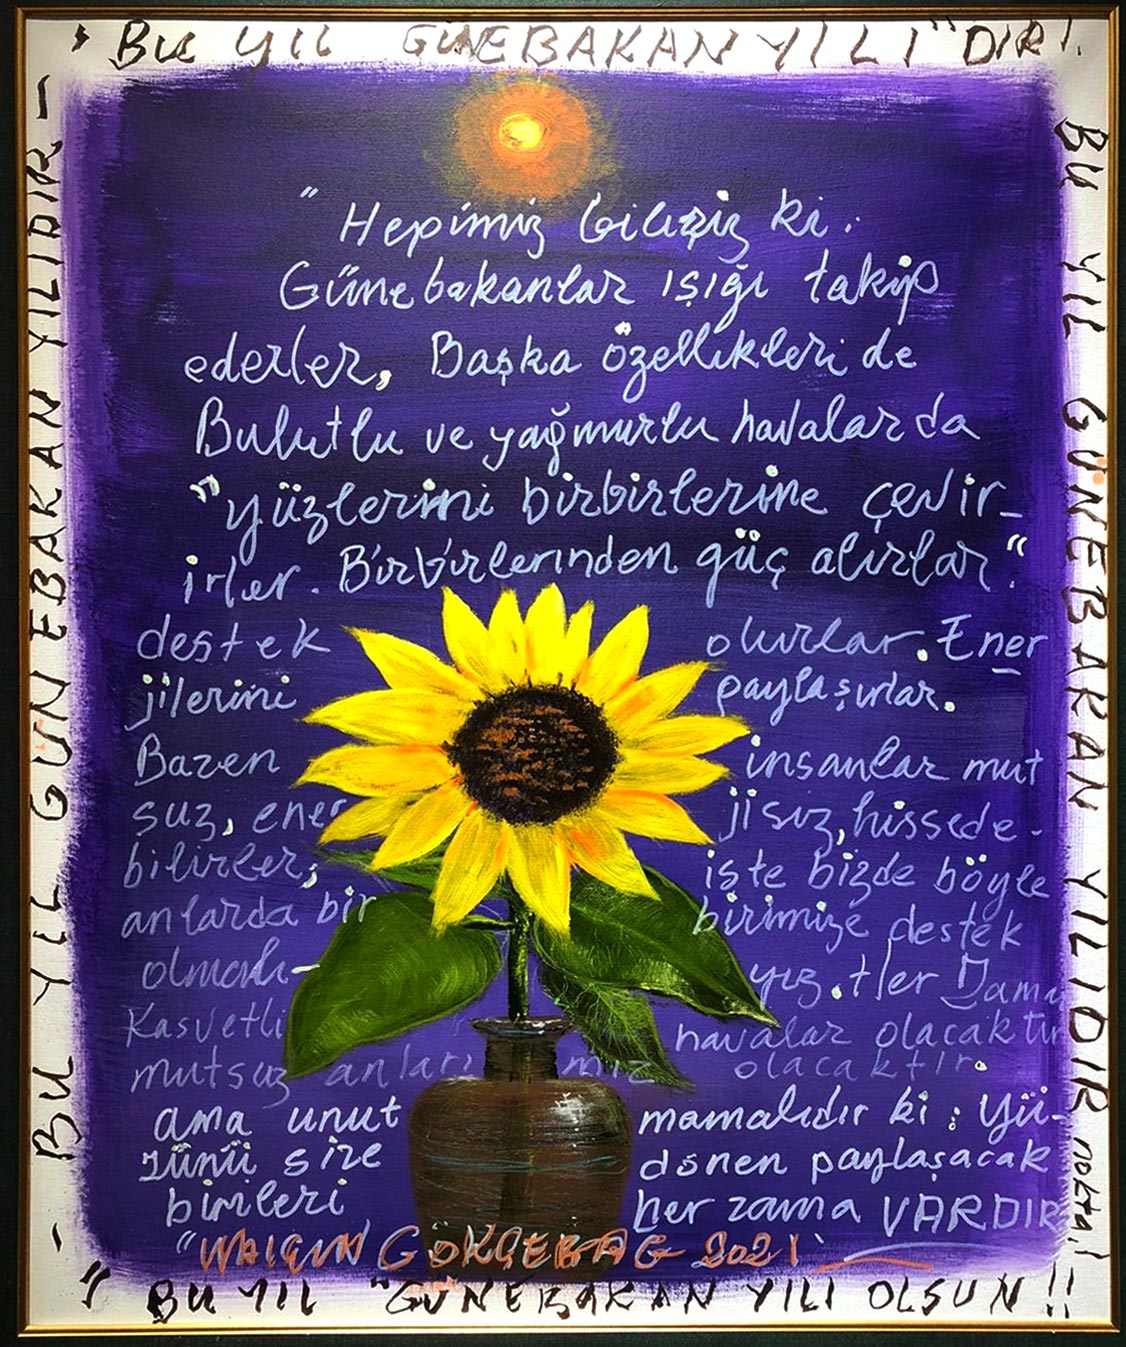 " BU YIL GÜNEBAKAN YILI" DIR!.
"Hepimiz biliriz ki:
Günebakanlar ışığı takip
ederler, Başka özellikleri de
Bulutlu ve yağmurlu havalarda
"yüzlerini birbirlerine çevir-
irler. Birbirlerinden güç alırlar"
destek olurlar. Ener
jilerini paylaşırlar.
Bazen insanlar mut
suz, ener jisiz, hissede-
bilirler; işte bizde böyle
anlarda bir birimize destek
olmalı- yız. Her Zama
Kasvetli havalar olacaktır
mutsuz anları mız olacaktır.
ama unut mamalıdır ki: Yü-
zünü size dönen paylaşacak
birileri her zama VARDIR
"YALÇIN GÖKÇEBAĞ 2021
" BU YIL "GÜNEBAKAN YILI OLSUN!!
- BU YIL GÜNEBAKAN YILIDIR -
BU YIL GÜNEBAKAN YILIDIR nokta!